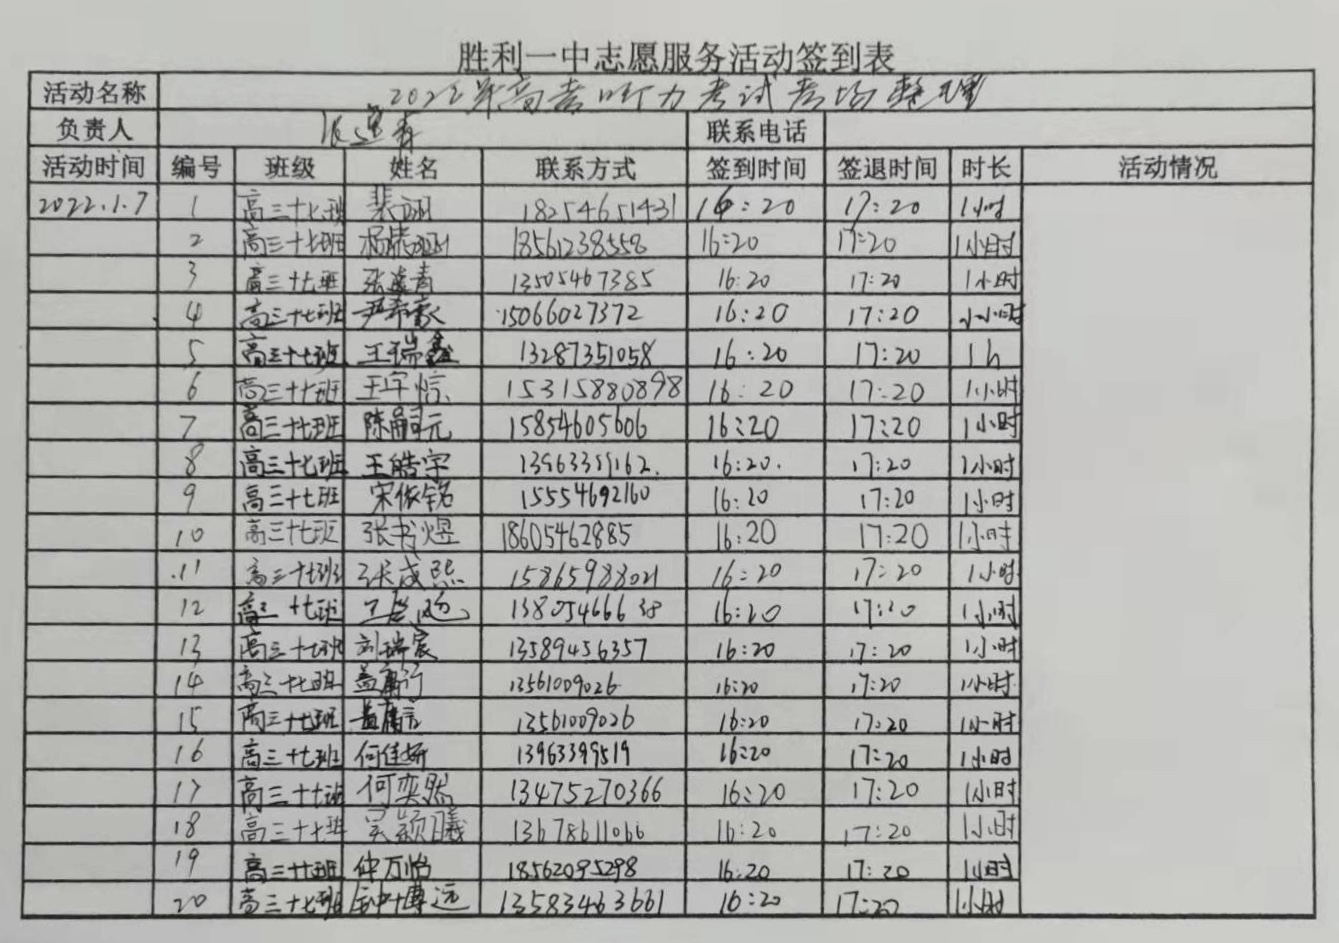 胜利一中志愿服务活动签到表
活动名称 2022年高考听力考试考场整理
负责人 张莲青 联系电话
活动时间 编号 班级 姓名 联系方式 签到时间 签退时间 时长 活动情况
2022.1.7 1 高三十七班 裴翊 18254651431 16:20 17:20 1小时
2 高三十七班 杨 18561238558 16:20 17:20 1小时
3 高三十七班 张莲青 13505467385 16:20 17:20 1小时
4 高三十七班 尹希豪 15066027372 16:20 17:20 小时
5 高三十七班 王瑞鑫 13287351058 16:20 17:20 1h
6 高三十七班 王宇惊 15315880898 16:20 17:20 1小时
7 高三十七班 陈嗣元 15854605606 16:20 17:20 1小时
8 高三十七班 王皓宇 16:20. 17:20 1小时
9 高三十七班 宋依铭 15554692160 16:20 17:20 1小时
10 高三十七班 张书煜 18605462885 16:20 17:20 1小时
11 高三十七班 张成熙 15865988021 16:20 17:20 1小时
12 高三十七班 16:20 17:20 1小时
13 高三十七班 刘瑞宸 13589456357 16:20 17:20 1小时
14 高三十七班 盖庸行 13561009026 16:20 17:20 1小时
15 高三十七班 盖庸言 13561009026 16:20 17:20 1小时
16 高三十七班 何佳妍 13963399519 16:20 17:20 1小时
17 高三十七班 何奕然 13475270366 16:20 17:20 1小时
18 高三十七班 吴颖曦 13678611066 16:20 17:20 1小时
19 高三十七班 仲万怡 18562095298 16:20 17:20 1小时
20 高三十七班 钟博远 13583463661 16:20 17:20 1小时